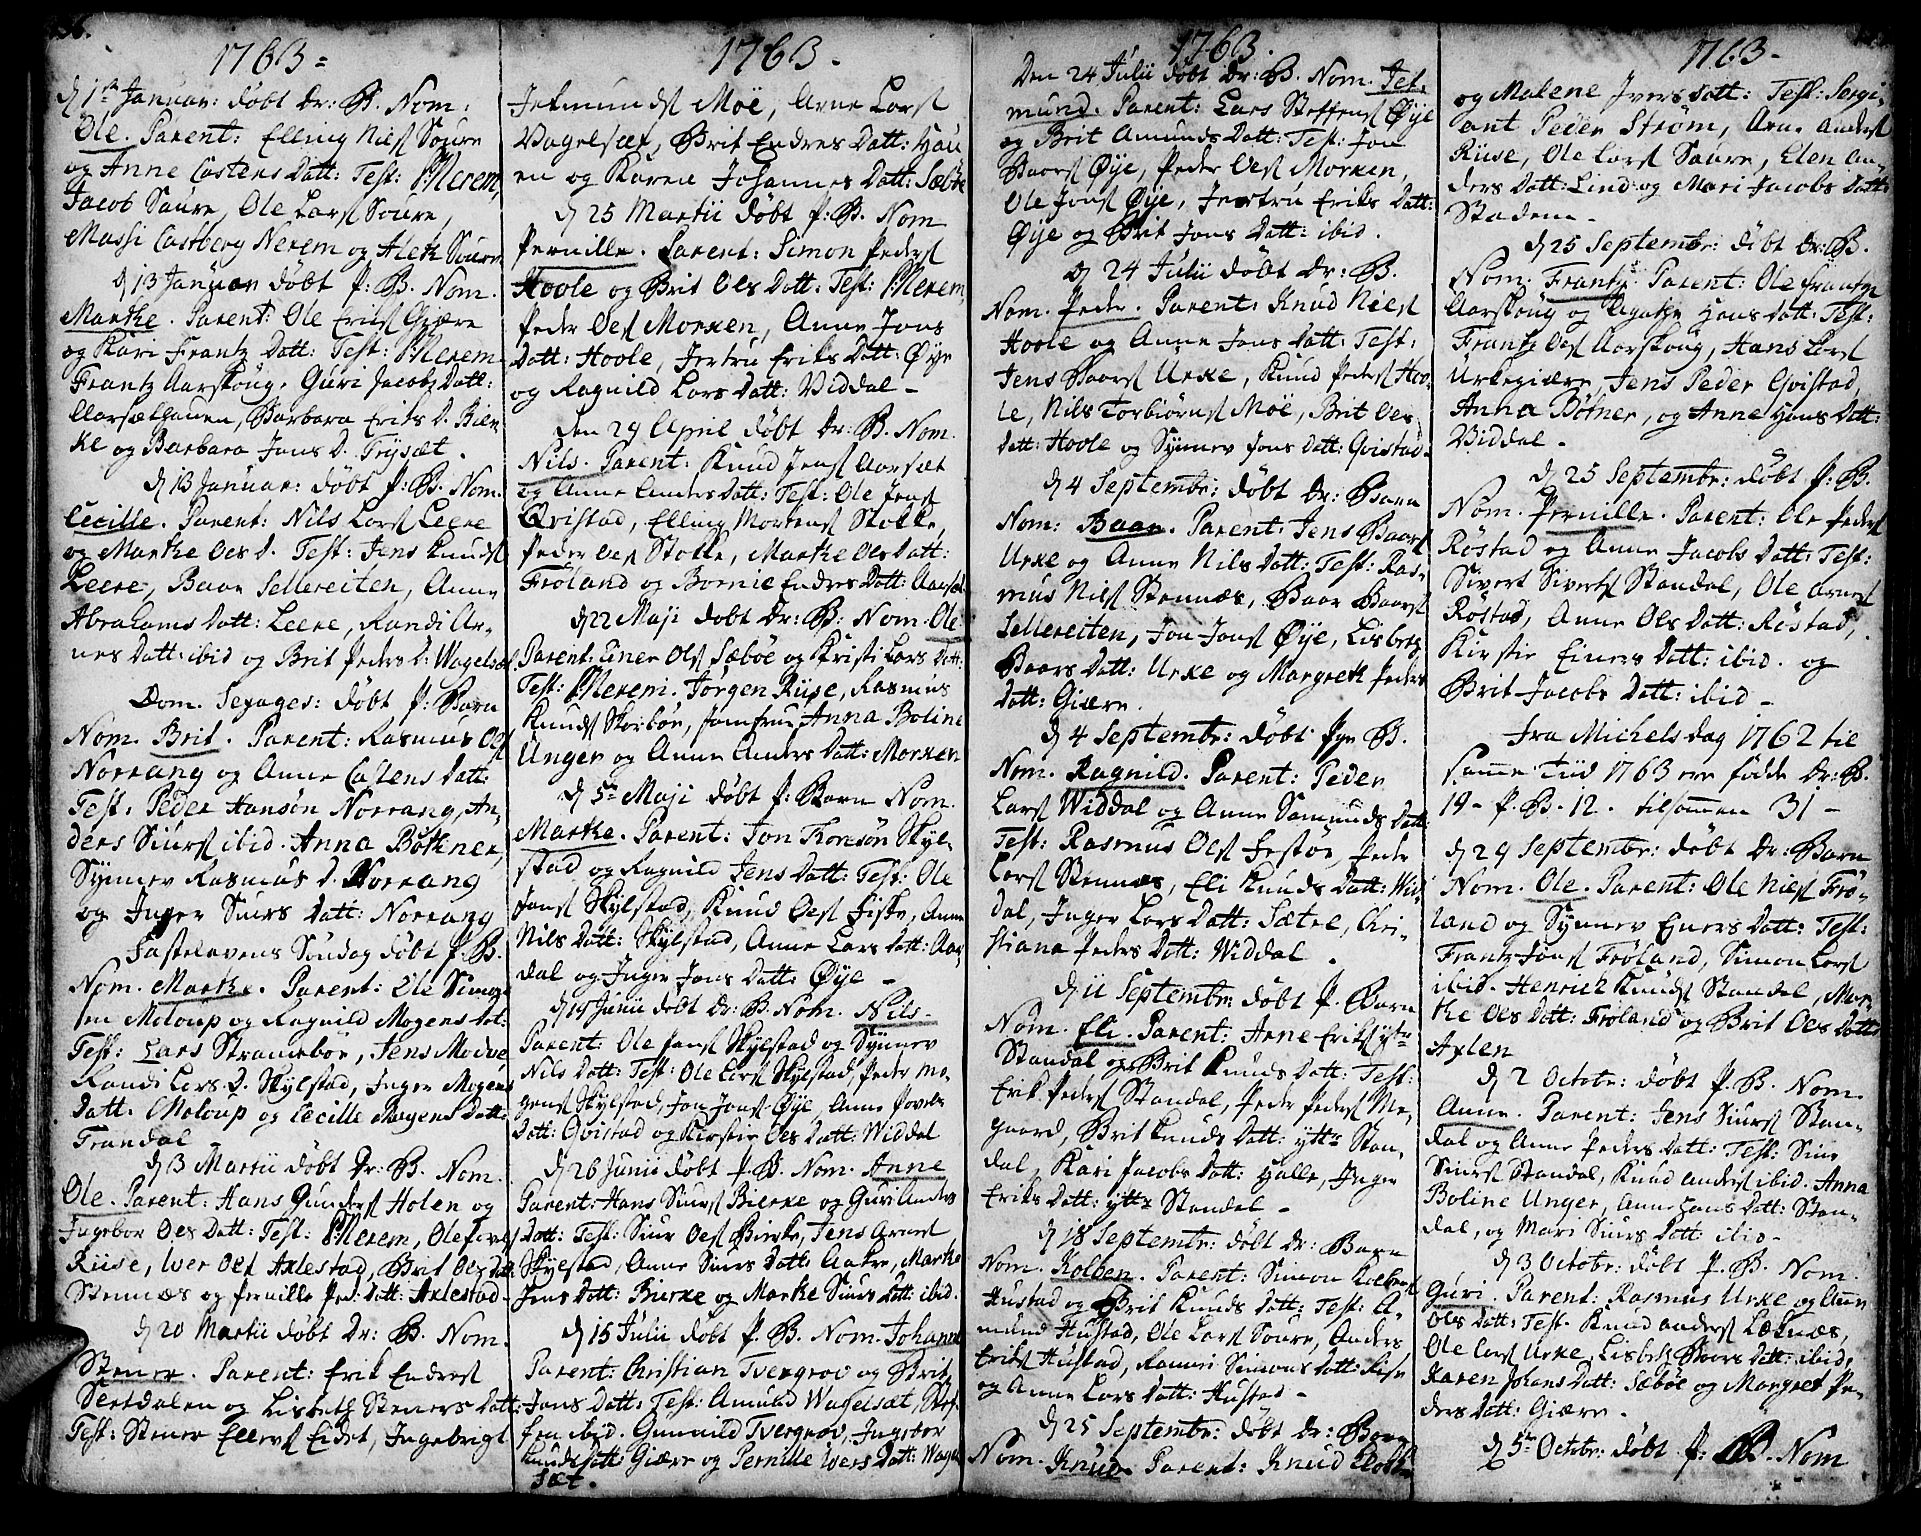 56.
1763 =
d 1te Januar: döbt Dr: B. Nom:
Ole. Parent: Elling Niels Soure
og Anne Castens Datt: Test: Merem,
Jacob Saure, Ole Lars Soure,
Massi Castberg Nerem og Alek Soure
d 13 Januar döbt P: B. Nom.
Marthe. Parent: Ole Eriks Giære
og Kari Frantz Datt: Test: Merem
Frantz Aarskoug. Guri Jacobs Datt:
Aarsæthauen, Barbara Eriks D. Bier-
ke og Barbara Jons D. Trysæt.
d 13 Januar: döbt P: B. Nom.
Cecille. Parent: Nils Lars Leere
og Marthe Oes D. Test: Jens Knuds
Leere, Baar Sellereiten, Anne
Abrahams Datt: Leere, Randi Ar-
nes Datt: ibid og Brit Peders D: Wagelsæt
Dom. Sexages: döbt P: Barn
Nom. Brit. Parent: Rasmus Ols
Norrang og Anne Castens Datt:
Test: Peder Hansøn Norrang, An-
ders Siurs ibid. Anna Bøthner,
Synnev Rasmus D. Norrang
og Inger Siurs Datt: Norrang
Fastelavens Söndag döbt P: B.
Nom. Marthe. Parent: Ole Simon-
sen Moloup og Ragnild Mogens Dat:
Test: Lars Stranebøe, Jens Modvé,
Randi Lars D. Skylstad, Inger Mogens
Datt: Moloup og Cecille Mogens Datt:
Trandal
d 3 Martii döbt Dr: B. Nom.
Ole. Parent: Hans Gunders Holen og
Ingebor Oes Datt: Test: Merem, Ole
Riise, Iver Oes Axlestad, Brit Oes Datt:
Stennes og Pernille Ped: Datt: Axlestad
d 20 Martii döbt Dr: B. Nom.
Stener. Parent: Erik Endres
Sertdalen og Lisbeth Steners Datt:
Test: Stener Ellevs Eidet, Ingebrigt
1763 -
Jetmunds Moë, Arne Lars
Vagelsæt, Brit Endres Datt: Hau
en og Karen Johannes Datt: Sæböe
d 25 Martii döbt P: B. Nom
Pernille. Parent: Simon Peders
Hoole og Brit Oes Datt: Test: Merem
Peder Oes Morken, Anne Jons
Datt: Hoole, Jertru Eriks Datt: Øye
og Ragnild Lars Datt: Viddal -
Den 29 April döbt Dr: B. Nom.
Nils. Parent: Knud Jens Aarsæt
og Anne Anders Datt: Test: Ole Jens
Qvistad, Elling Mortens Stokke,
Peder Oes Stokke, Marthe Oes Datt:
Frøland og Bornie Endres Datt: Aarsæt
d 22 Maji döbt Dr: B: Nom: Ole
Parent: Einer Ols Sæböe og Kristi Lars Datt:
Test: Merem. Jørgen Riise, Rasmus
Knuds Skorböe, Jomfrue Anna Boline
Unger og Anne Anders Datt: Morken
d 5te Maji döbt P: Barn Nom.
Marthe. Parent: Jon Thoresön Skyl-
stad og Ragnild Jens Datt: Test: Ole
Jons Skylstad, Knud Oes Fiske, Anne
Nils Datt: Skylstad, Anne Lars Datt: Aar
dal og Inger Jons Datt: Øye -
d 19 Junii döbt Dr: B. Nom. Nils.
Parent: Ole Jens Skylstad og Synnev
Nils Datt: Test: Ole Lars Skylstad, Peder Mo-
gens Skylstad, Jon Jons Øye, Anne Povels
Datt: Qvistad og Kirstie Oes Datt: Widdal
d 26 Junii döbt P. B. Nom. Anne
Parent: Hans Siurs Bierke og Guri Anders
Datt: Test: Siur Oes Bierke, Jens Arnes
Skylstad, Anne Siurs Datt: Aakre, Marthe
Jens Datt: Bierke og Marthe Siurs Datt: ibid.
d 15 Julii döbt P. B. Nom. Johanne
Parent: Christian Tvergrov og Brit
Jons Datt: Test: Amund Wagelsæt, Stef-
fen ibid. Gunnild Tvergrov, Ingebor
Knuds Datt: Giære og Pernille Ivers Datt: Wagel
sæt.
1763.
Den 24 Julii döbt Dr: B. Nom. Jet-
mund. Parent: Lars Steffens Øye
og Brit Amunds Datt: Test: Jon
Baars Øye, Peder Oes Morken,
Ole Jons Øye, Jertru Eriks Datt:
Øye og Brit Jons Datt: ibid.
D 24 Julii döbt Dr: B.
Nom. Peder. Parent: Knud Niels
Hoole og Anne Jons Datt: Test:
Jens Baars Urke, Knud Peders Hoo-
le, Nils Torbiörns Moë, Brit Oes
Datt: Hoole og Synnev Jons Datt: Qvistad.
d 4 Septembr: döbt Dr: Barn
Nom: Baar. Parent: Jens Baars
Urke og Anne Nils Datt: Test: Ras-
mus Niels Stennæs, Baar Baars
Sellereiten, Jon Jons Øye, Lisbet
Baars Datt: Urke og Margreth Peders
Datt: Giære.
d 4 Septembr: döbt Pge B.
Nom. Ragnild. Parent: Peder
Lars Widdal og Anne Samunds Datt:
Test: Rasmus Oes Festøe, Peder
Lars Stennæs, Eli Knuds Datt: Wid
dal, Inger Lars Datt: Sætre, Chri-
stiana Peders Datt: Widdal.
d 11 Septembr: döbt P. Barn
Nom. Eli. Parent: Arne Eriks ytte
Standal og Brit Knuds Datt: Test:
Erik Peders Standal, Peder Peders Me-
gaard, Brit Knuds Datt: ytte Stan-
dal, Kari Jacobs Datt: Halle, Inger
Eriks Datt: ytte Standal -
d 18 Septembr: döbt Dr: Barn
Nom. Kolben. Parent: Simon Kolbens
Hustad og Brit Knuds Datt: Test: A-
mund Hustad, Ole Lars Soure, Anders
Eriks Hustad, Rannei Simons Datt: Riise
og Anne Lars Datt: Hustad -
d 25 Septembr: döbt Dr: Barn
Nom. Knud. Parent: Knud
1763 -
og Malene Ivers Datt: Test: Sergi-
ant Peder Strøm, Arne Anders
Riise, Ole Lars Saure, Elen An-
ders Datt: Lind og Mari Jacobs Datt:
Stadem -
d 25 Septembr: döbt Dr: B.
Nom: Frantz. Parent: Ole Frantz
Aarskoug og Agathe Hans Datt: Test:
Frantz Oes Aarskoug, Hans Lars
Urkegiære, Jens Peder Qvistad,
Anna Bötner, og Anne Hans Datt:
Viddal -
d 25 Septembr: döbt P. B.
Nom. Pernille. Parent: Ole Peders
Röstad og Anne Jacobs Datt: Test:
Sivert Siverts Standal, Ole Arnes
Röstad, Anne Oes Datt: Röstad,
Kirstie Einers Datt: ibid. og
Brit Jacobs Datt: ibid -
Fra Michels dag 1762 til
samme Tiid 1763 ere födde Dr: B.
19 - P. B. 12. tilsammen 31 -
d 29 Septembr: döbt Dr: Barn
Nom. Ole. Parent: Ole Niels Frö-
land og Synnev Eners Datt: Test:
Frantz Jons Fröland, Simon Lars
ibid. Henrich Knuds Standal, Mar-
the Oes Datt: Fröland og Brit Oes Datt:
Axlen
d 2 Octobr: döbt P. B. Nom.
Anne. Parent: Jens Siurs Stan-
dal og Anne Peders Datt: Test: Siur
Siurs Standal, Knud Anders ibid. Anna
Boline Unger, Anne Hans Datt: Stan-
dal, og Mari Siurs Datt: ibid -
d 3 Octobr: döbt P. B. Nom.
Guri. Parent: Rasmus Urke og Ann
Oes Datt: Test. Knud Anders Leknæs,
Ole Lars Urke, Lisbeth Baars Datt: ibid,
Karen Johans Datt: Sæböe og Margret Pe-
ders Datt: Giære.
d 5te Octobr: döbt P: B. Nom